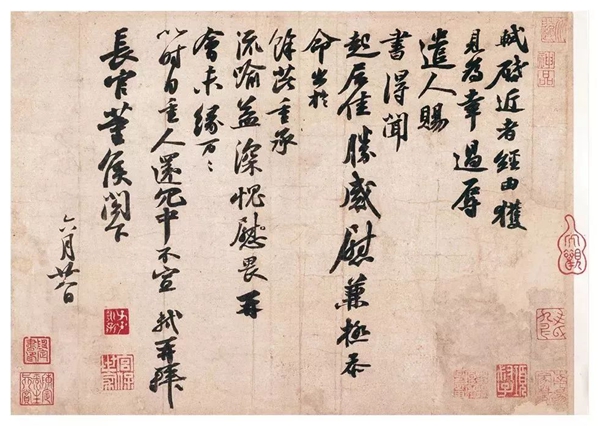 軾啓近者經由獲
見為幸過辱
遣人賜
書得聞
起居佳勝感慰兼極忝
命出於
餘芘重承
流喻益深愧慰畏再
會未緣萬々
以時自重人還冗中不宣 軾再拜
長官董侯閣下
六月廿八日
神品